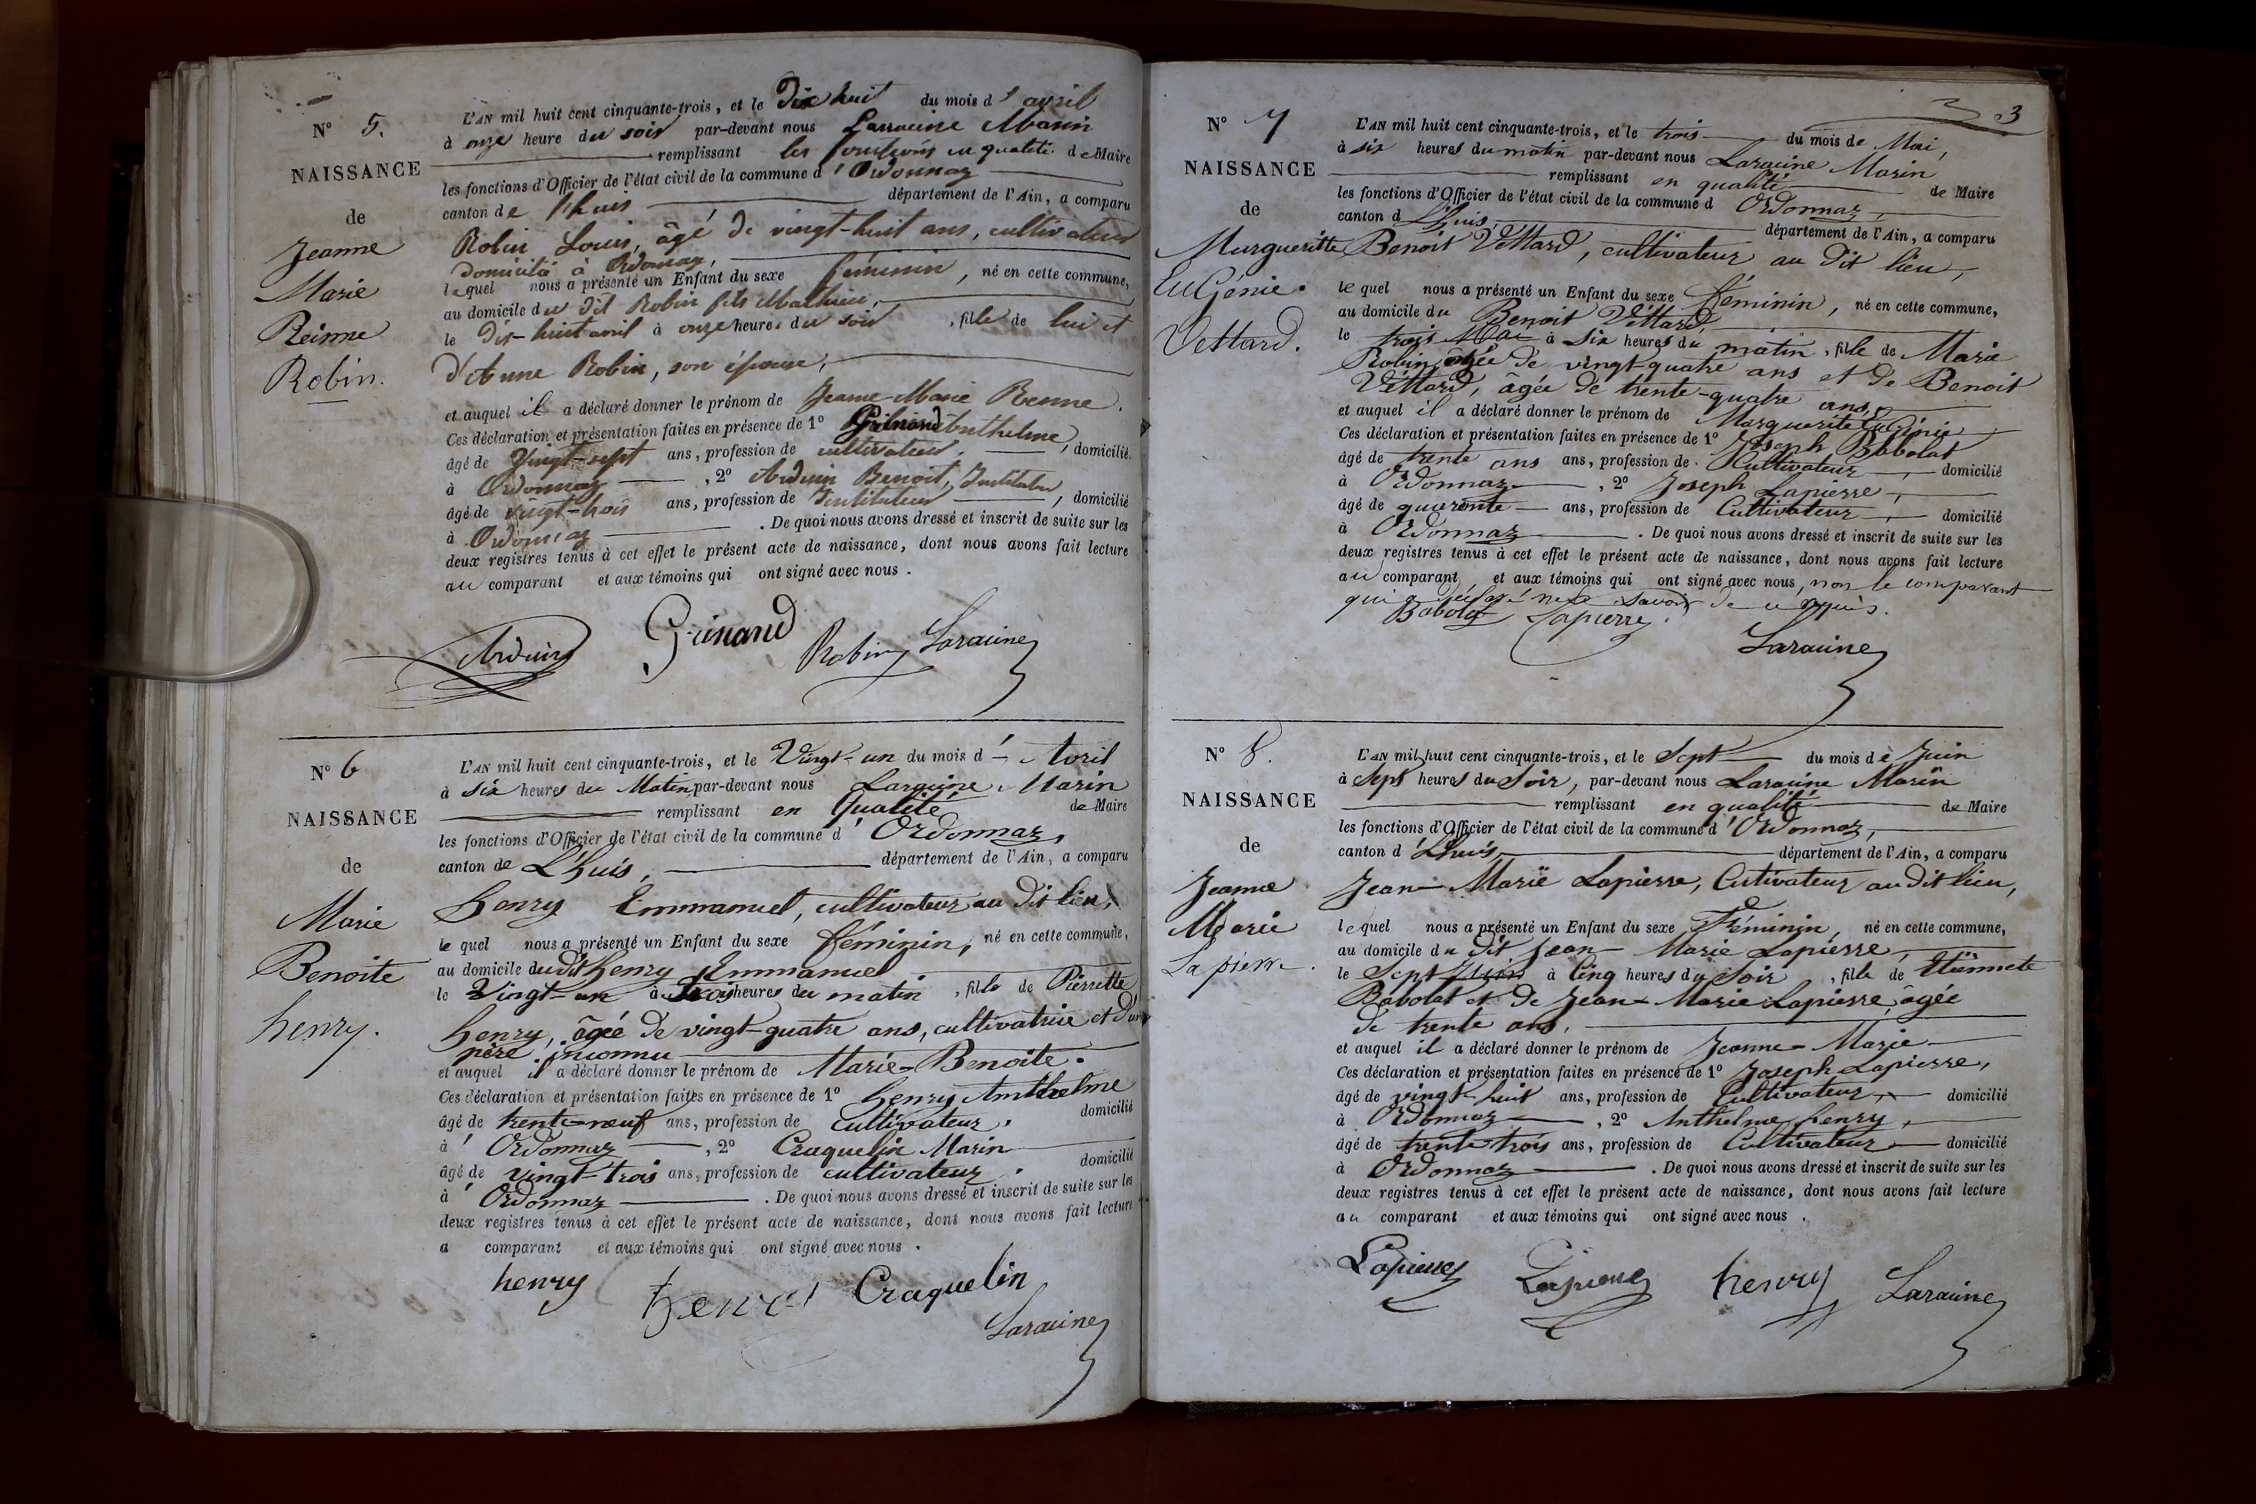 N° 5.
NAISSANCE
de
Jeanne
Marie
Reinne
Robin.
L'AN mil huit cent cinquante-trois, et le Dix huit du mois d' avril
à onze heure du soir par-devant nous Larracine Marin
remplissant les fonctions en qualité de Maire
les fonctions d'Officier de l'état civil de la commune d' Ordonnaz
canton de l'huis département de l'Ain, a comparu
Robin Louis, âgé de vingt-huit ans, cultivateur
domicilié à Ordonnaz,
lequel nous a présenté un Enfant du sexe féminin, né en cette commune,
au domicile du dit Robin fils Mathieu,
le Dix-huit avril à onze heures du soir, fille de lui et
d'Anne Robin, son épouse,
et auquel il a déclaré donner le prénom de Jeanne-Marie Renne.
Ces déclaration et présentation faites en présence de 1° Grinand Anthelme,
âgé de Vingt-sept ans, profession de cultivateur, domicilié
à Ordonnaz, 2° Arduin Benoit, Instituteur
âgé de vingt-trois ans, profession de Instituteur, domicilié
à Ordonnaz. De quoi nous avons dressé et inscrit de suite sur les
deux registres tenus à cet effet le présent acte de naissance, dont nous avons fait lecture
au comparant et aux témoins qui ont signé avec nous.
Arduin Grinand Robin Laracine
N° 6
NAISSANCE
de
Marie
Benoite
henry.
L'AN mil huit cent cinquante-trois, et le Vingt-un du mois d' Avril
à six heures du Matin par-devant nous Laracine Marin
remplissant en Qualité de Maire
les fonctions d'Officier de l'état civil de la commune d' Ordonnaz,
canton de L'huis, département de l'Ain, a comparu
henry Emmanuel, cultivateur au dit lieu,
lequel nous a présenté un Enfant du sexe féminin, né en cette commune,
au domicile du dit henry Emmanuel
le Vingt-un à trois heures du matin, fille de Pierrette
henry, âgée de vingt-quatre ans, cultivatrice et d'un
père inconnu
et auquel il a déclaré donner le prénom de Marie-Benoite.
Ces déclaration et présentation faites en présence de 1° henry Anthelme
âgé de trente-neuf ans, profession de cultivateur, domicilié
à Ordonnaz, 2° Craquelin Marin
âgé de vingt-trois ans, profession de cultivateur, domicilié
à Ordonnaz. De quoi nous avons dressé et inscrit de suite sur les
deux registres tenus à cet effet le présent acte de naissance, dont nous avons fait lecture
a comparant et aux témoins qui ont signé avec nous.
henry henry Craquelin
Laracine
3
N° 7
NAISSANCE
de
Margueritte
Eugénie.
Vettard.
L'AN mil huit cent cinquante-trois, et le trois du mois de Mai,
à six heures du matin par-devant nous Laracine Marin
remplissant en qualité de Maire
les fonctions d'Officier de l'état civil de la commune d Ordonnaz,
canton d L'huis, département de l'Ain, a comparu
Benoit Vettard, cultivateur au dit lieu,
lequel nous a présenté un Enfant du sexe féminin, né en cette commune,
au domicile du Benoit Véttard,
le trois Mai à six heures du matin, fille de Marie
Robin, âgée de vingt-quatre ans et de Benoit
Véttard, âgée de trente-quatre ans,
et auquel il a déclaré donner le prénom de Marguerite Eugénie
Ces déclaration et présentation faites en présence de 1° Joseph Babolat
âgé de trente ans ans, profession de Cultivateur, domicilié
à Ordonnaz, 2° Joseph Lapierre,
âgé de quarente ans, profession de Cultivateur, domicilié
à Ordonnaz. De quoi nous avons dressé et inscrit de suite sur les
deux registres tenus à cet effet le présent acte de naissance, dont nous avons fait lecture
au comparant et aux témoins qui ont signé avec nous, non le comparant
qui a déclaré ne savoir de ce requis.
Babolat Lapierre.
Laracine
N° 8.
NAISSANCE
de
Jeanne
Marie
Lapierre.
L'AN mil huit cent cinquante-trois, et le Sept du mois de Juin
à Sept heures du Soir, par-devant nous Laracine Marin
remplissant en qualité de Maire
les fonctions d'Officier de l'état civil de la commune d' Ordonnaz,
canton d L'huis, département de l'Ain, a comparu
Jean-Marie Lapierre, Cutivateur au dit lieu,
lequel nous a présenté un Enfant du sexe Féminin, né en cette commune,
au domicile du dit Jean-Marie Lapierre,
le Sept Juin à Cinq heures du Soir, fille de Etiennete
Babolat et de Jean-Marie Lapierre, âgée
de trente ans,
et auquel il a déclaré donner le prénom de Jeanne-Marie
Ces déclaration et présentation faites en présence de 1° Joseph Lapierre,
âgé de vingt-huit ans, profession de Cultivateur, domicilié
à Ordonnaz, 2° Anthelme henry,
âgé de trente trois ans, profession de Cultivateur domicilié
à Ordonnaz. De quoi nous avons dressé et inscrit de suite sur les
deux registres tenus à cet effet le présent acte de naissance, dont nous avons fait lecture
au comparant et aux témoins qui ont signé avec nous.
Lapierre Lapierre henry Laracine